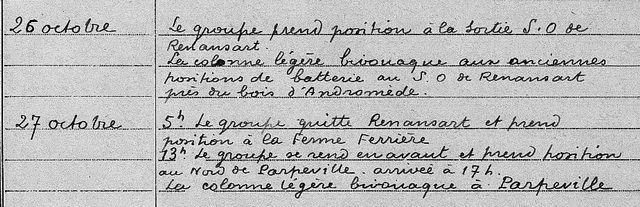 26 octobre Le groupe prend position à la sortie S.O de
Renansart.
La colonne légère bivouaque aux anciennes
positions de batterie au S.O de Renansart
près du bois d'Andromède.
27 octobre 5h Le groupe quitte Renansart et prend
position à la Ferme Ferrière
13h Le groupe se rend en avant et prend position
au Nord de Parpeville. arrivée à 17h.
La colonne légère bivouaque à Parpeville